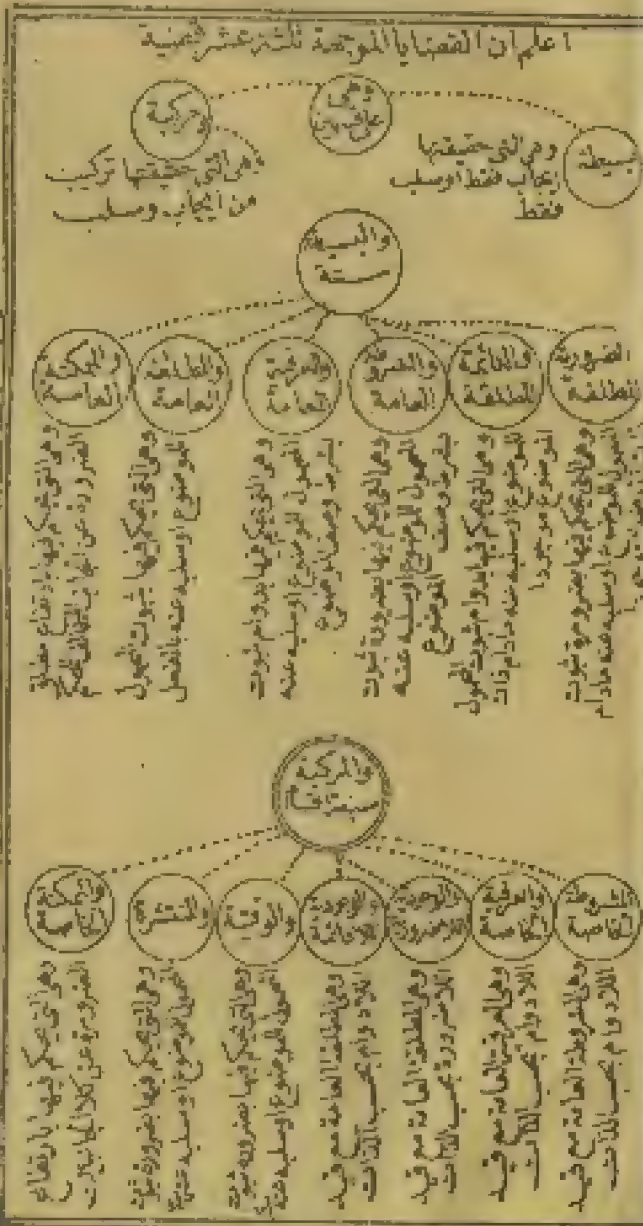 اعلم ان القضايا الموجهة ثلثة عشر قضية
وهى
على قسمين
بسيطة
وهى التى حقيقتها
ايجاب فقط او سلب
فقط
ومركبة
وهى التى حقيقتها تركيب
من ايجاب وسلب
والبسيطة
ستة
الضرورية
المطلقة
وهى التى يحكم فيها بضرورة ثبوت
المحمول للموضوع او سلبه عنه مادام
والدائمة
المطلقة
وهى التى يحكم فيها بدوام ثبوت المحمول
للموضوع او سلبه عنه مادام ذات
الموضوع موجودا
والمشروطة
العامة
وهى التى يحكم فيها بضرورة ثبوت
المحمول للموضوع او سلبه عنه
بشرط وصف الموضوع
والعرفية
العامة
وهى التى يحكم فيها بدوام ثبوت
المحمول للموضوع او سلبه عنه
بشرط وصف الموضوع
والمطلقة
العامة
وهى التى يحكم فيها بثبوت المحمول
للموضوع او سلبه عنه بالفعل
والممكنة
العامة
وهى التى يحكم فيها بارتفاع مطلقة
الضرورة عن الجانب المخالف للحكم
والمركبة
سبعة اقسام
المشروطة
الخاصة
وهى المشروطة العامة مع قيد
اللادوام بحسب الذات
والعرفية
الخاصة
وهى العرفية العامة مع قيد
اللادوام بحسب الذات
والوجودية
اللاضرورية
وهى المطلقة العامة مع قيد
اللاضرورة بحسب الذات
والوجودية
اللادائمة
وهى المطلقة العامة مع قيد
اللادوام بحسب الذات
والوقتية
وهى التى يحكم فيها بضرورة ثبوت
المحمول للموضوع او سلبه عنه
والمنتشرة
وهى التى يحكم فيها بضرورة ثبوت
المحمول للموضوع او سلبه عنه
والممكنة
الخاصة
وهى التى يحكم فيها بارتفاع
الضرورة عن كلا الجانبين